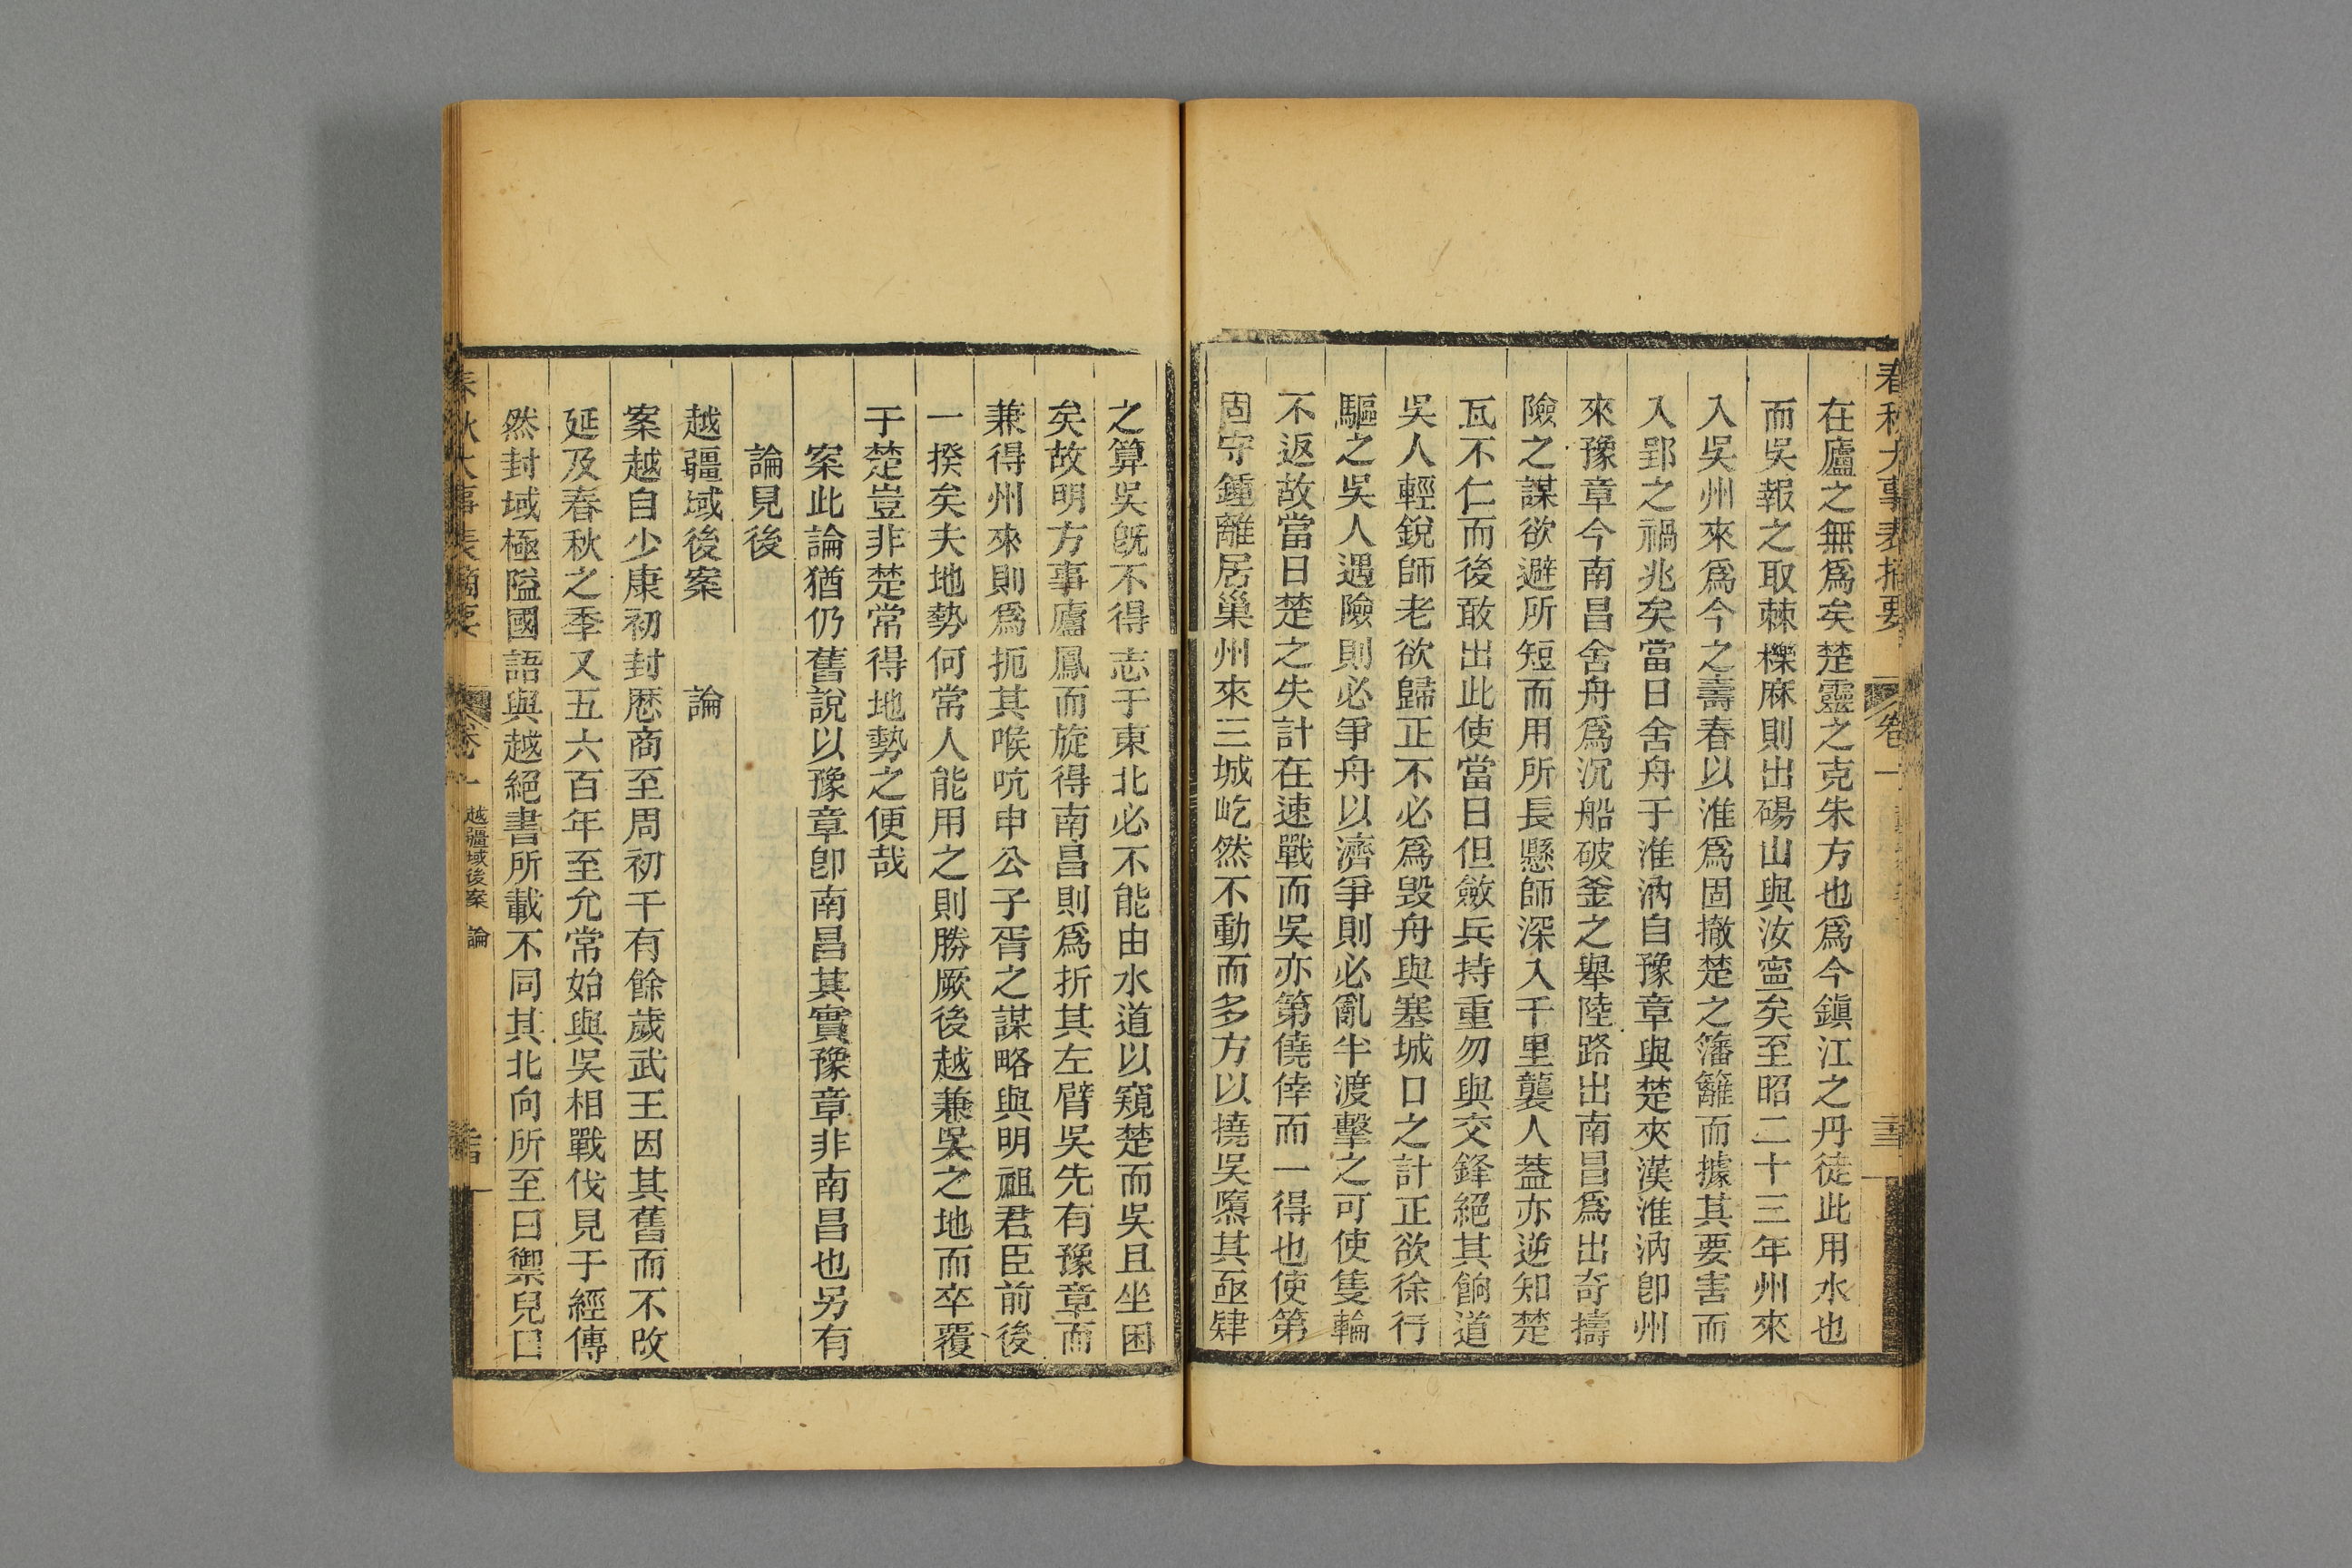 春秋大事表摘要 卷一
在廬之無爲矣楚靈之克朱方也爲今鎭江之丹徒此用水也
而吳報之取棘櫟麻則出碭山與汝寧矣至昭二十三年州來
入吳州來爲今之壽春以淮爲固撤楚之籓籬而據其要害而
入郢之禍兆矣當日舍舟于淮汭自豫章與楚夾漢淮汭卽州
來豫章今南昌舍舟爲沉船破釜之舉陸路出南昌爲出奇擣
險之謀欲避所短而用所長懸師深入千里襲人蓋亦逆知楚
瓦不仁而後敢出此使當日但斂兵持重勿與交鋒絕其餉道
吳人輕銳師老欲歸正不必爲毀舟與塞城口之計正欲徐行
驅之吳人遇險則必爭舟以濟爭則必亂半渡擊之可使隻輪
不返故當日楚之失計在速戰而吳亦第僥倖而一得也使第
固守鍾離居巢州來三城屹然不動而多方以撓吳隳其亟肄
之算吳旣不得志于東北必不能由水道以窺楚而吳且坐困
矣故明方事廬鳳而旋得南昌則爲折其左臂吳先有豫章而
兼得州來則爲扼其喉吭申公子胥之謀略與明祖君臣前後
一揆矣夫地勢何常人能用之則勝厥後越兼吳之地而卒覆
于楚豈非楚常得地勢之便哉
案此論猶仍舊說以豫章卽南昌其實豫章非南昌也另有
論見後
越疆域後案 論
案越自少康初封歷商至周初千有餘歲武王因其舊而不改
延及春秋之季又五六百年至允常始與吳相戰伐見于經傳
然封域極隘國語與越絕書所載不同其北向所至曰禦兒曰
春秋大事表摘要 卷一 越疆域後案 論